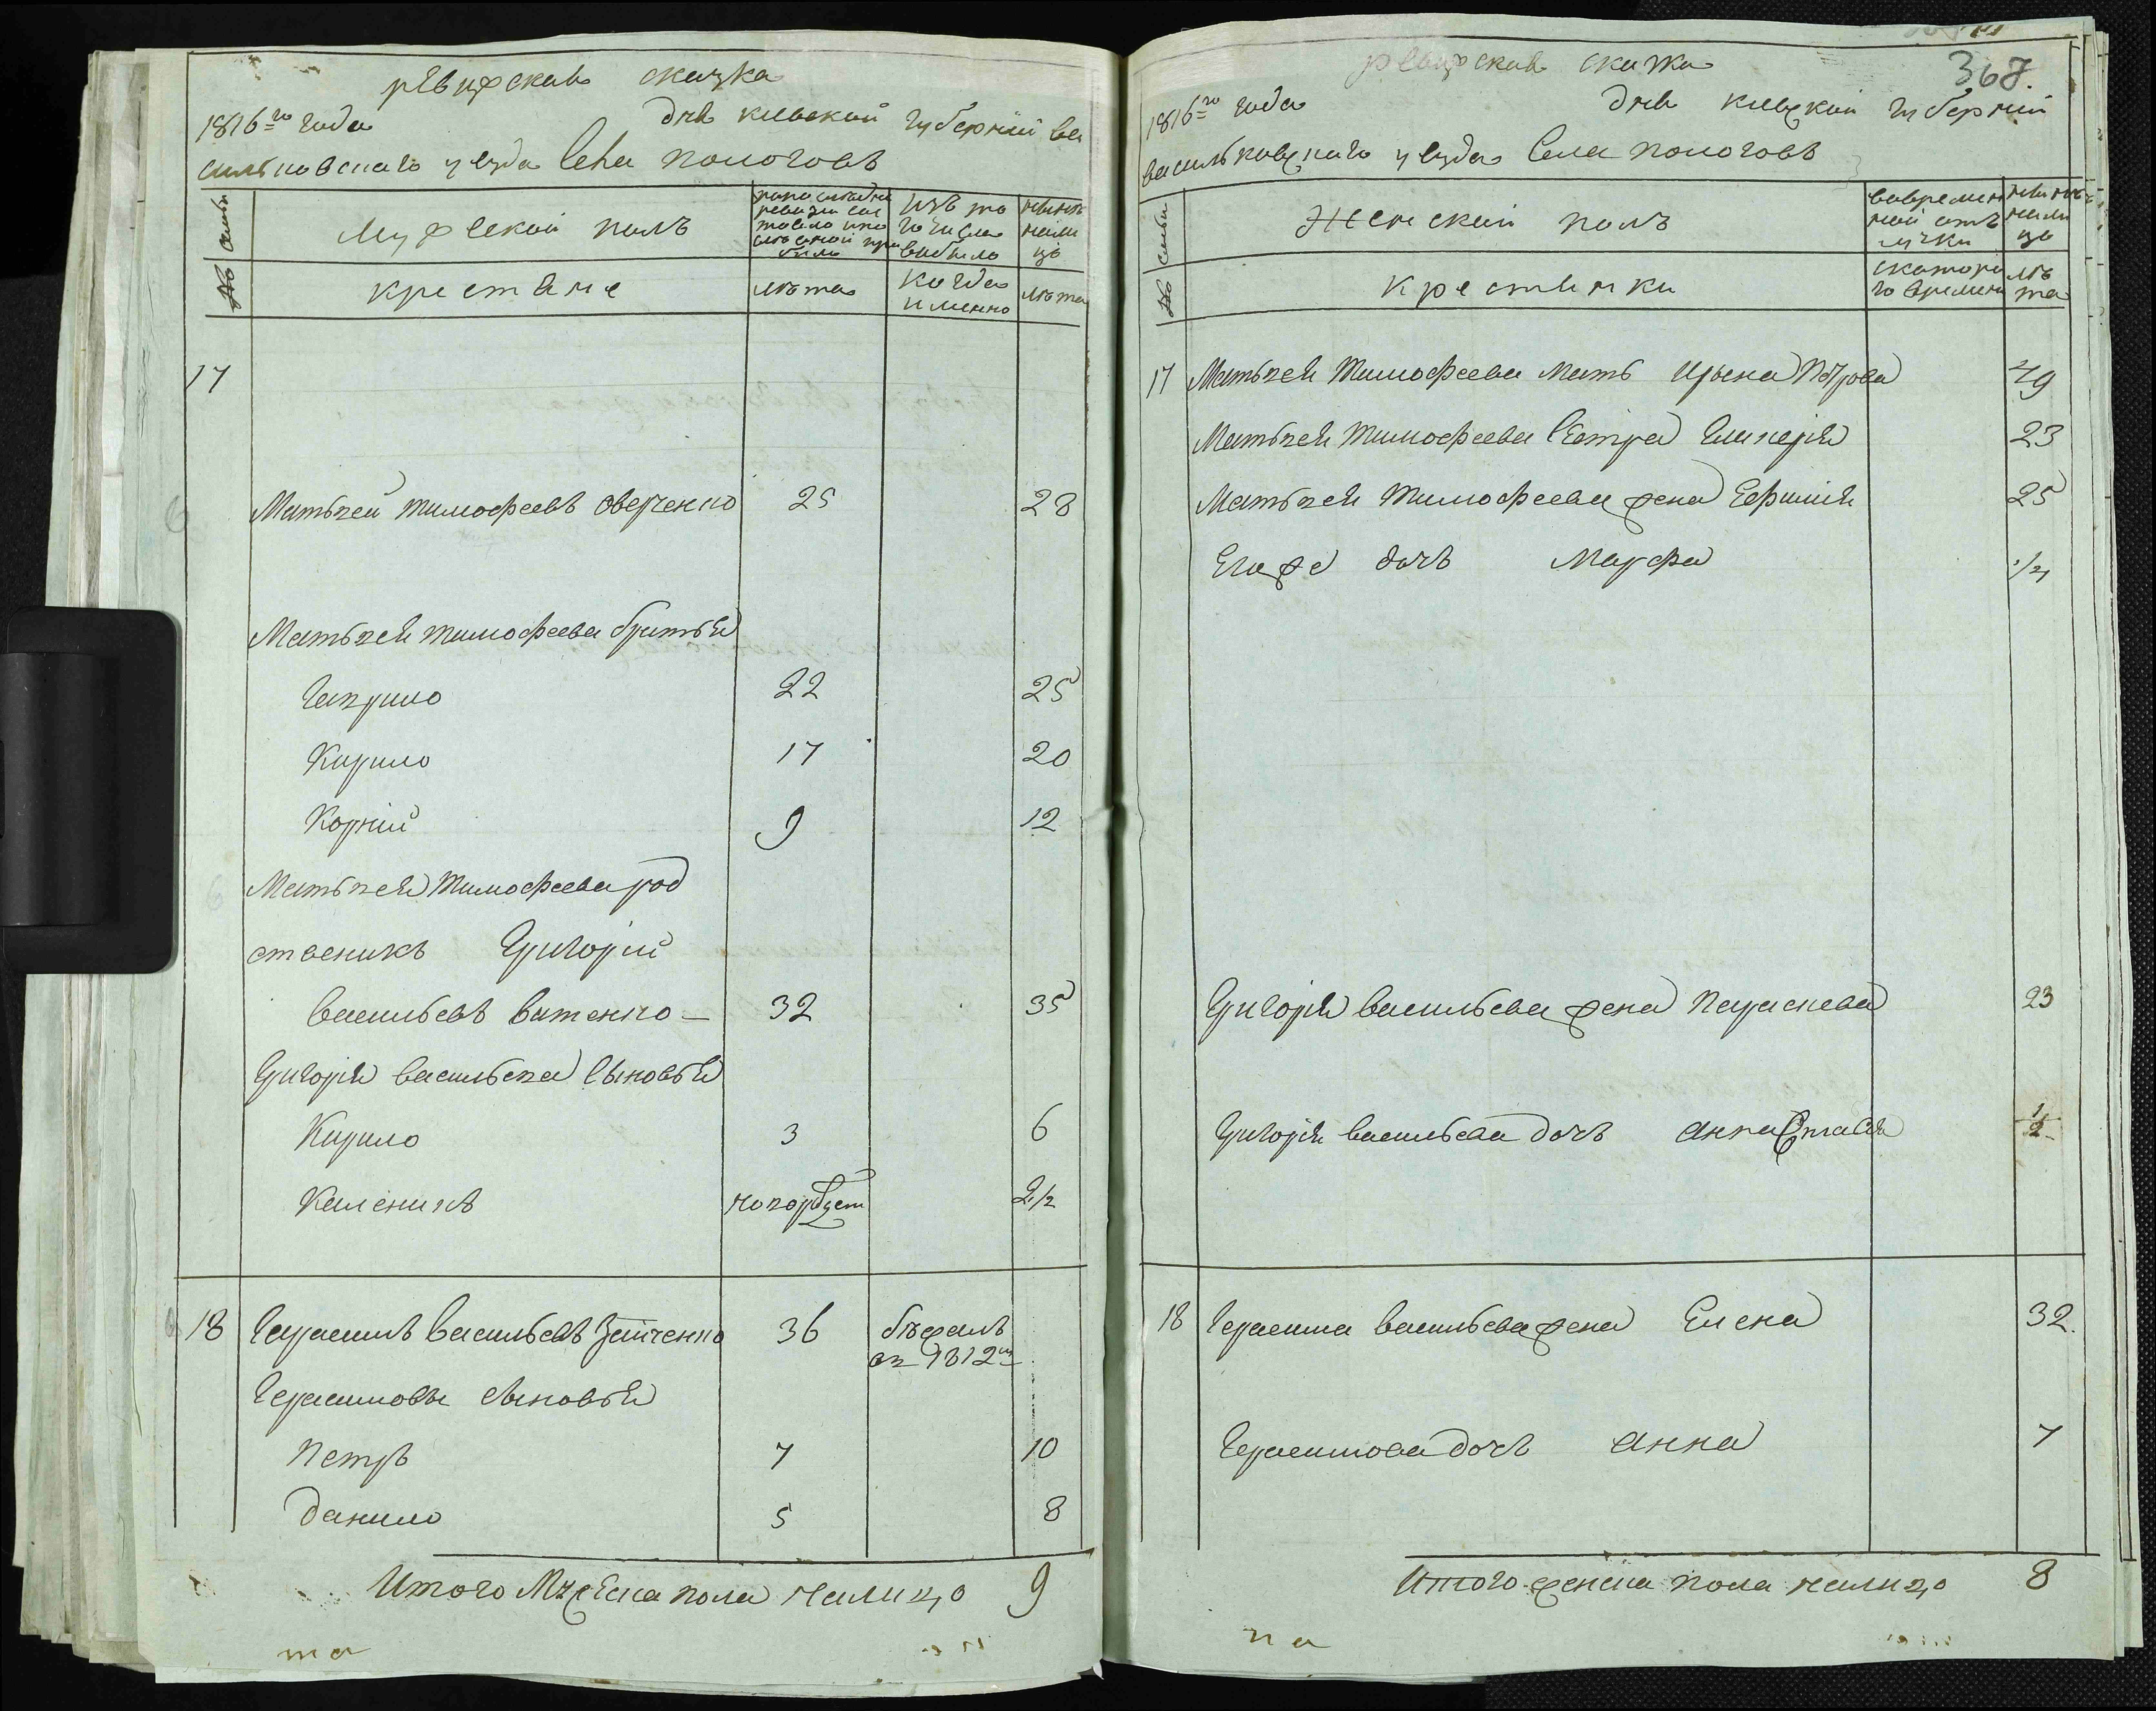 ревизская сказка
1816го года дня киевской губернии ва
сильковского уезда Села пологовъ
№ семьи
Мужеской полъ
по последней ревизии состояло и после оной прибыло
Изъ то го числа выбыло
ныне на лицо
крестьяне
лѣта
когда именно
лѣта
17
Матвей тимофеевъ оверченко 25 28
Матвея тимофеева братья
Гаврило 22 25
Кирило 17 20
Корнiй 9 12
Матвея Тимофеева род
ственикъ Григорiй
васильевъ ватенко 32 35
Григорiя васильева Сыновья
Кирило 3 6
Каленикъ 2 1/2
18 Герасимъ васильевъ Зайченко 36 бежалъ
въ 1812м
Герасимовы сыновья
Петръ 7 10
данило 5 8
Итого Мужеска пола налицо 9
ревизская сказка
367.
1816го года дня киевской губернии
васильковского уезда Села пологовъ
№ семьи
Женской полъ
во времен ной отлучки
ныне налицо
Крестьянки
с которого времени
лѣта
17 Матвея Тимофеева мать Ирына Петрова 49
Матвея Тимофеева Сестра Гликерiя 23
Матвея Тимофеева жена Ефимия 25
Егоже дочъ Марфа 1/4
Григорiя васильева жена Параскева 23
Григорiя васильева дочъ анна 1/2
18 Герасима васильева жена Елена 32.
Герасимова дочъ анна 7
Итого женска пола налицо 8